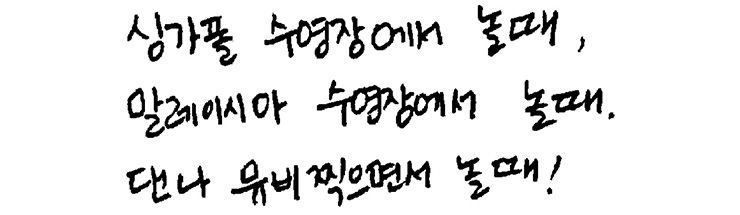 싱가폴 수영장에서 놀때,
말레이시아 수영장에서 놀때.
댄나 뮤비찍으면서 놀때!